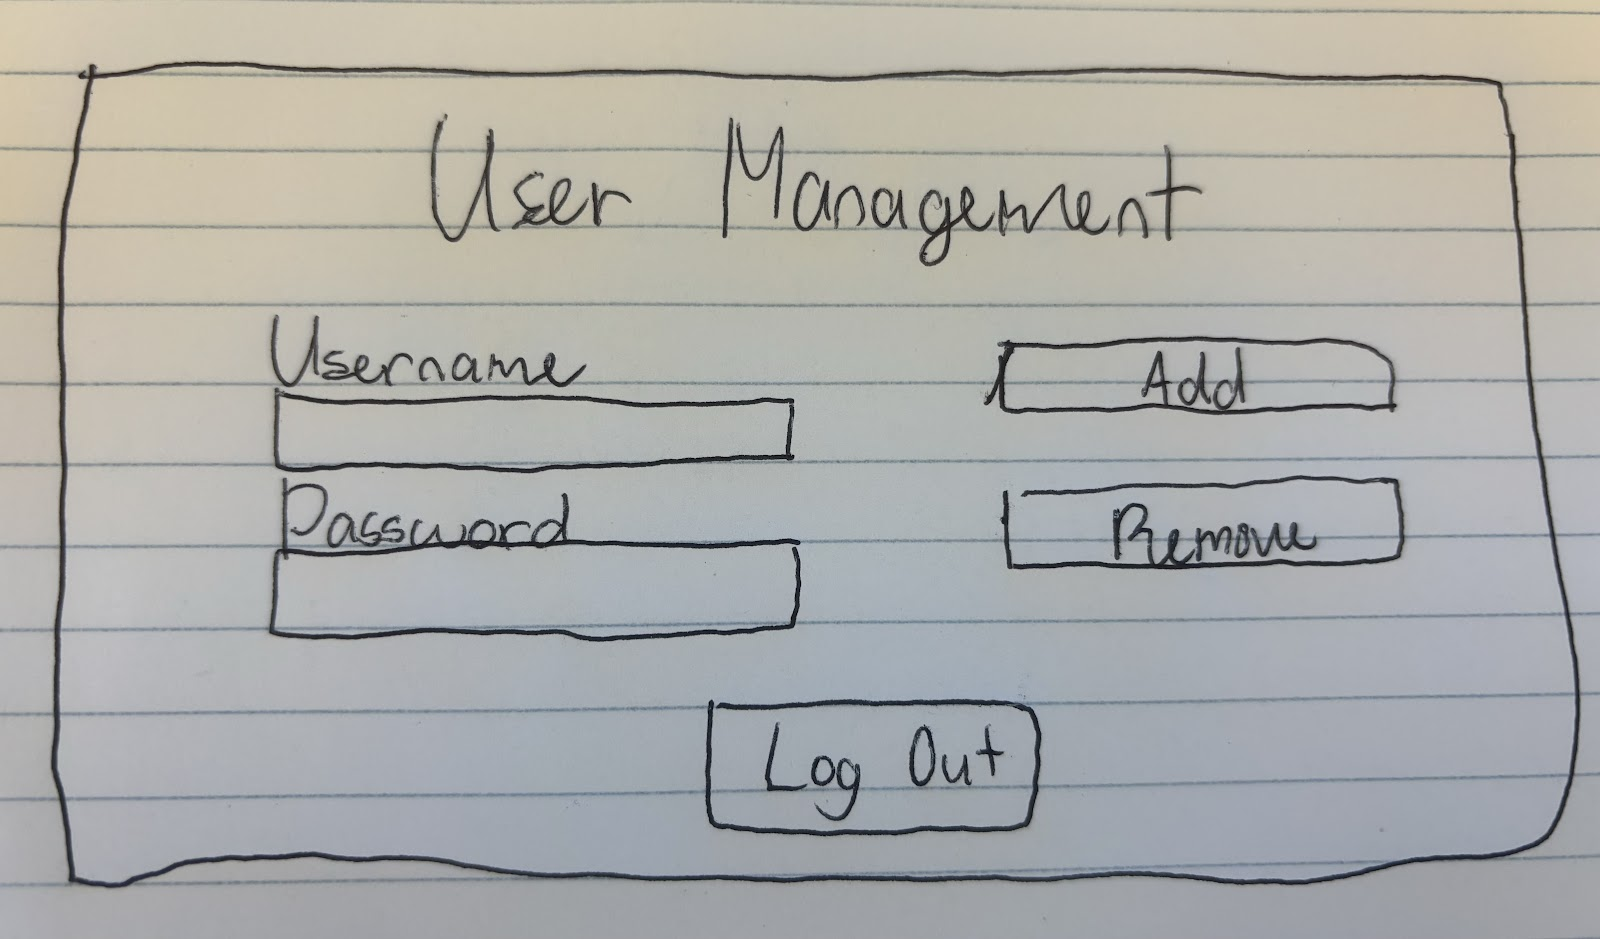 User Management
Username
Add
Password
Remove
Log Out